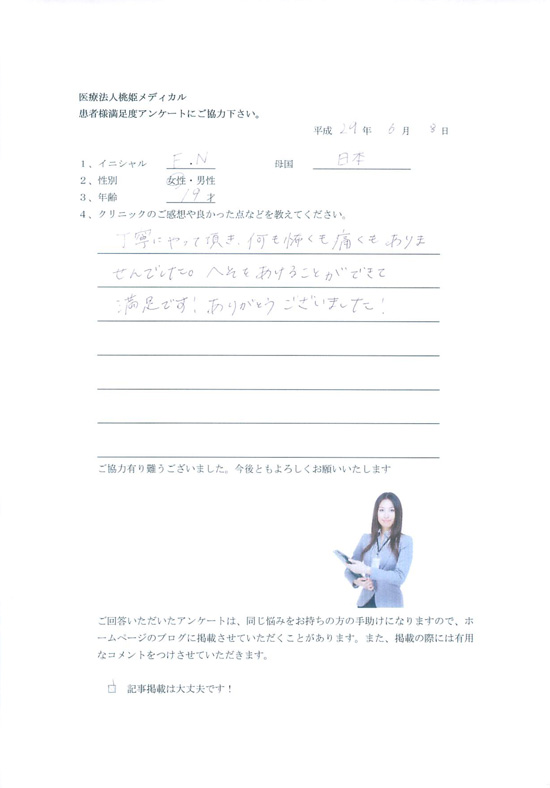 医療法人桃姫メディカル
患者様満足度アンケートにご協力下さい。
平成 29 年 6 月 8 日
1、イニシャル F.N 母国 日本
2、性別 女性・男性
3、年齢 19才
4、クリニックのご感想や良かった点などを教えてください。
丁寧にやって頂き、何も怖くも痛くもありま
せんでした。へそをあけることができて
満足です！ありがとうございました！
ご協力有り難うございました。今後ともよろしくお願いいたします
ご回答いただいたアンケートは、同じ悩みをお持ちの方の手助けになりますので、ホ
ームページのブログに掲載させていただくことがあります。また、掲載の際には有用
なコメントをつけさせていただきます。
□ 記事掲載は大丈夫です！